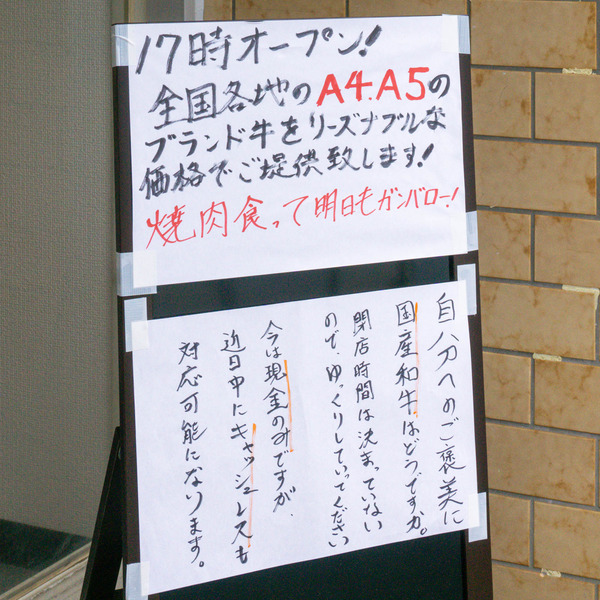 17時オープン!
全国各地のA4.A5の
ブランド牛をリーズナブルな
価格でご提供致します!
焼肉食って明日もガンバロー!
自分へのご褒美に
国産和牛はどうですか。
閉店時間は決まっていない
ので、ゆっくりしていってください
今は現金のみですが、
近日中にキャッシュレスも
対応可能になります。